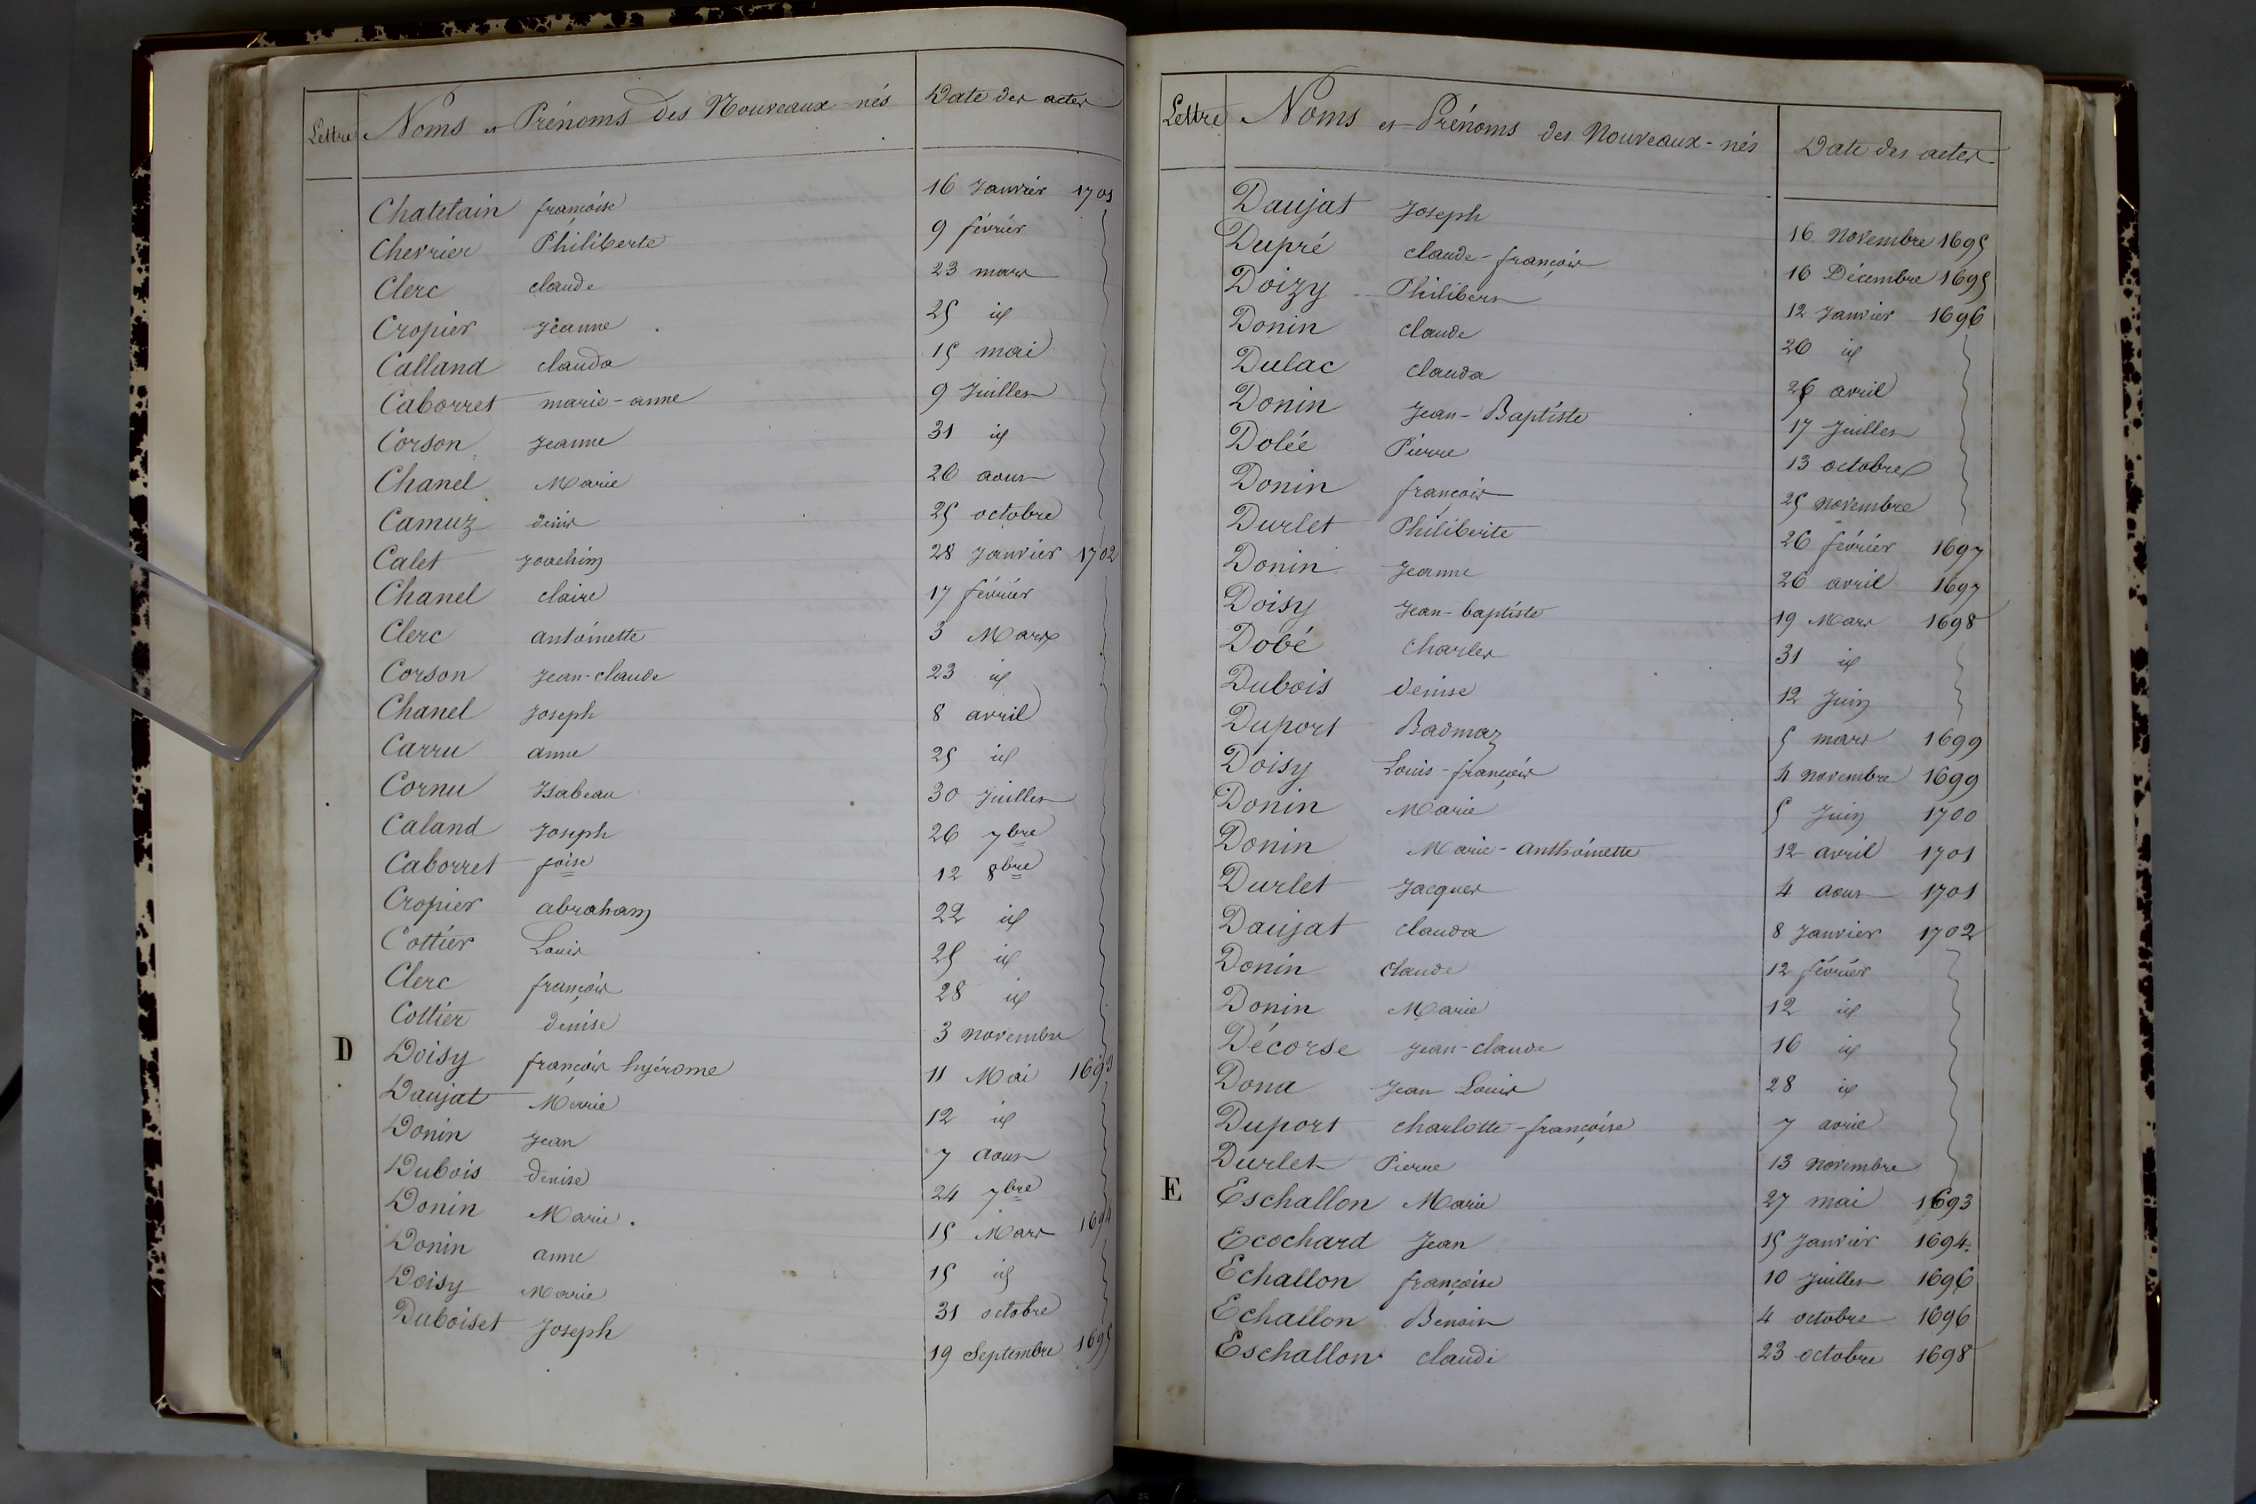 Lettre Noms et Prénoms des Nouveaux-nés Date des actes
Chatelain françoise 16 Janvier 1701
Chevrier Philiberte 9 février
Clerc claude 23 mars
Cropier Jeanne 25 id
Calland clauda 15 mai
Caborret marie-anne 9 Juillet
Corson Jeanne 31 id
Chanel Marie 20 aout
Camuz denis 25 octobre
Calet Joachim 28 Janvier 1702
Chanel claire 17 février
Clerc antoinette 3 Mars
Corson Jean-claude 23 id
Chanel Joseph 8 avril
Carru anne 25 id
Cornu Isabeau 30 Juillet
Caland Joseph 26 7bre
Caborret foise 12 8bre
Cropier abraham 22 id
Cottier Louis 25 id
Clerc françois 28 id
Cottier denise 3 novembre
D Doisy françois hyérome 11 Mai 1693
Daujat Marie 12 id
Donin Jean 7 Aout
Dubois denise 24 7bre
Donin Marie. 15 Mars 1694
Donin anne 15 id
Doisy Marie 31 octobre
Duboiset Joseph 19 Septembre 1695
Lettre Noms et Prénoms des Nouveaux-nés Date des actes
Daujat Joseph 16 Novembre 1695
Dupré claude-françois 16 Décembre 1695
Doizy Philibert 12 Janvier 1696
Donin claude 20 id
Dulac clauda avril
Donin Jean-Baptiste 17 Juillet
Dolée Pierre 13 octobre
Donin françois 25 novembre
Durlet Philiberte 26 février 1697
Donin Jeanne 26 avril 1697
Doisy Jean-baptiste 19 Mars 1698
Dobé charles 31 id
Dubois denise 12 Juin
Duport Badmaz 5 mars 1699
Doisy Louis-françois 4 novembre 1699
Donin Marie 5 Juin 1700
Donin Marie-anthoinette 12 avril 1701
Durlet Jacques 4 aout 1701
Daujat clauda 8 Janvier 1702
Donin claude 12 février
Donin Marie 12 id
Décorse Jean-claude 16 id
Dona Jean Louis 28 id
Duport charlotte-françoise 7 avril
Durlet Pierre 13 novembre
E Eschallon Marie 27 mai 1693
Ecochard Jean 15 Janvier 1694.
Echallon françoise 10 Juillet 1696
Echallon Benoit 4 octobre 1696
Eschallon claude 23 octobre 1698